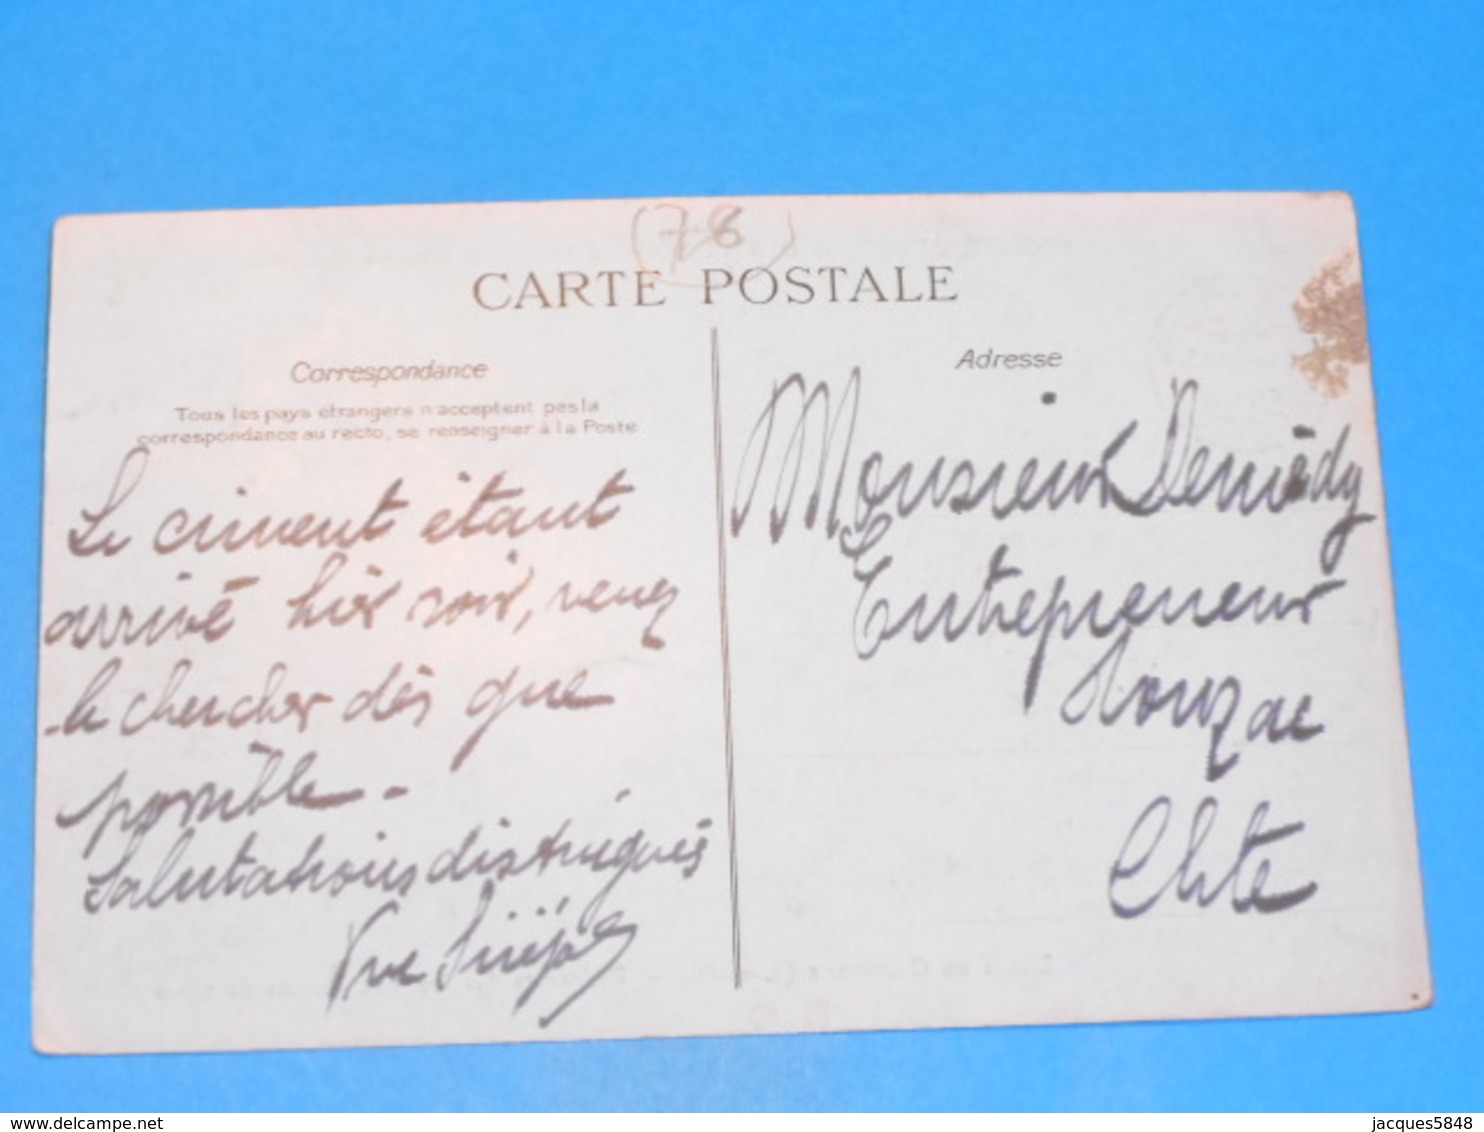 (76)
CARTE POSTALE
Correspondance
Tous les pays étrangers n'acceptent pas la
correspondance au recto, se renseigner à la Poste
Le ciment étant
arrivé hier soir, venez
le chercher dès que
possible -
Salutations distingués
Vve
Adresse
Monsieur
Entrepreneur
Mouzac
Chte
delcampe.net
jacques5848